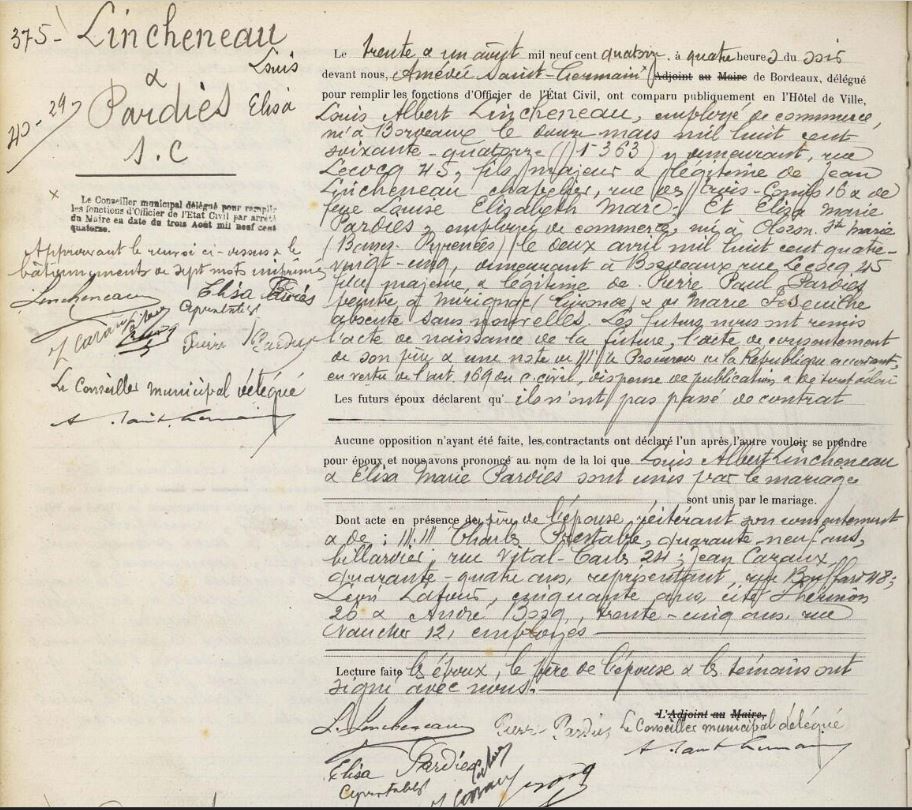 375 - Lincheneau
Louis
&
Pardiès Elisa
40-29
S.C
×
Le Conseiller municipal délégué pour remplir
les fonctions d'Officier de l'Etat Civil par arrêté
du Maire en date du trois Août mil neuf cent
quatorze.
Approuvant le renvoi ci-dessus & le
bâtonnements de sept mots imprimés
Lincheneau Elisa Pardiès
Pierre Pardies
Le Conseiller municipal délégué
A. Saint-Germain
Le trente & un août mil neuf cent quatorze, à quatre heures du soir
devant nous, Amédée Saint-Germain × Adjoint au Maire de Bordeaux, délégué
pour remplir les fonctions d'Officier de l'État Civil, ont comparu publiquement en l'Hôtel de Ville,
Louis Albert Lincheneau, employé de commerce,
né à Bordeaux le douze mars mil huit cent
soixante-quatorze (1363) y demeurant, rue
Lecocq 45, fils majeur & légitime de Jean
Lincheneau chapelier, rue des Trois-Conils 16 & de
feue Louise Elizabeth Marc. Et Elisa Marie
Pardiès, employée de commerce, née à Oloron Ste Marie
(Basses-Pyrénées) le deux avril mil huit cent quatre-
vingt-cinq, demeurant à Bordeaux rue Lecocq 45
fille majeure & légitime de Pierre Paul Pardies
peintre à Mérignac (Gironde) & de Marie
absente sans nouvelles. Les futurs nous ont remis
l'acte de naissance de la future, l'acte de consentement
de son père & une note de Mr le Procureur de la République accordant,
en vertu de l'art. 169 du c. civil, dispense de publication & de tout délai
Les futurs époux déclarent qu' ils n'ont pas passé de contrat
Aucune opposition n'ayant été faite, les contractants ont déclaré l'un après l'autre vouloir se prendre
pour époux et nous avons prononcé au nom de la loi que Louis Albert Lincheneau
& Elisa Marie Pardiès sont unis par le mariage
sont unis par le mariage.
Dont acte en présence du père de l'épouse réitérant son consentement
& de : M.M Charles quarante-neuf ans,
billardier, rue Vital-Carles 24; Jean Cazaux,
quarante-quatre ans, représentant, rue Bouffard 48;
Léon cinquante ans, cité
26 & André trente-cinq ans, rue
Vaucher 12, employés
Lecture faite les époux, le père de l'épouse & les témoins ont
signé avec nous.
L'Adjoint au Maire,
L. Lincheneau Pierre Pardies Le Conseiller municipal délégué
Elisa Pardies A. Saint-Germain